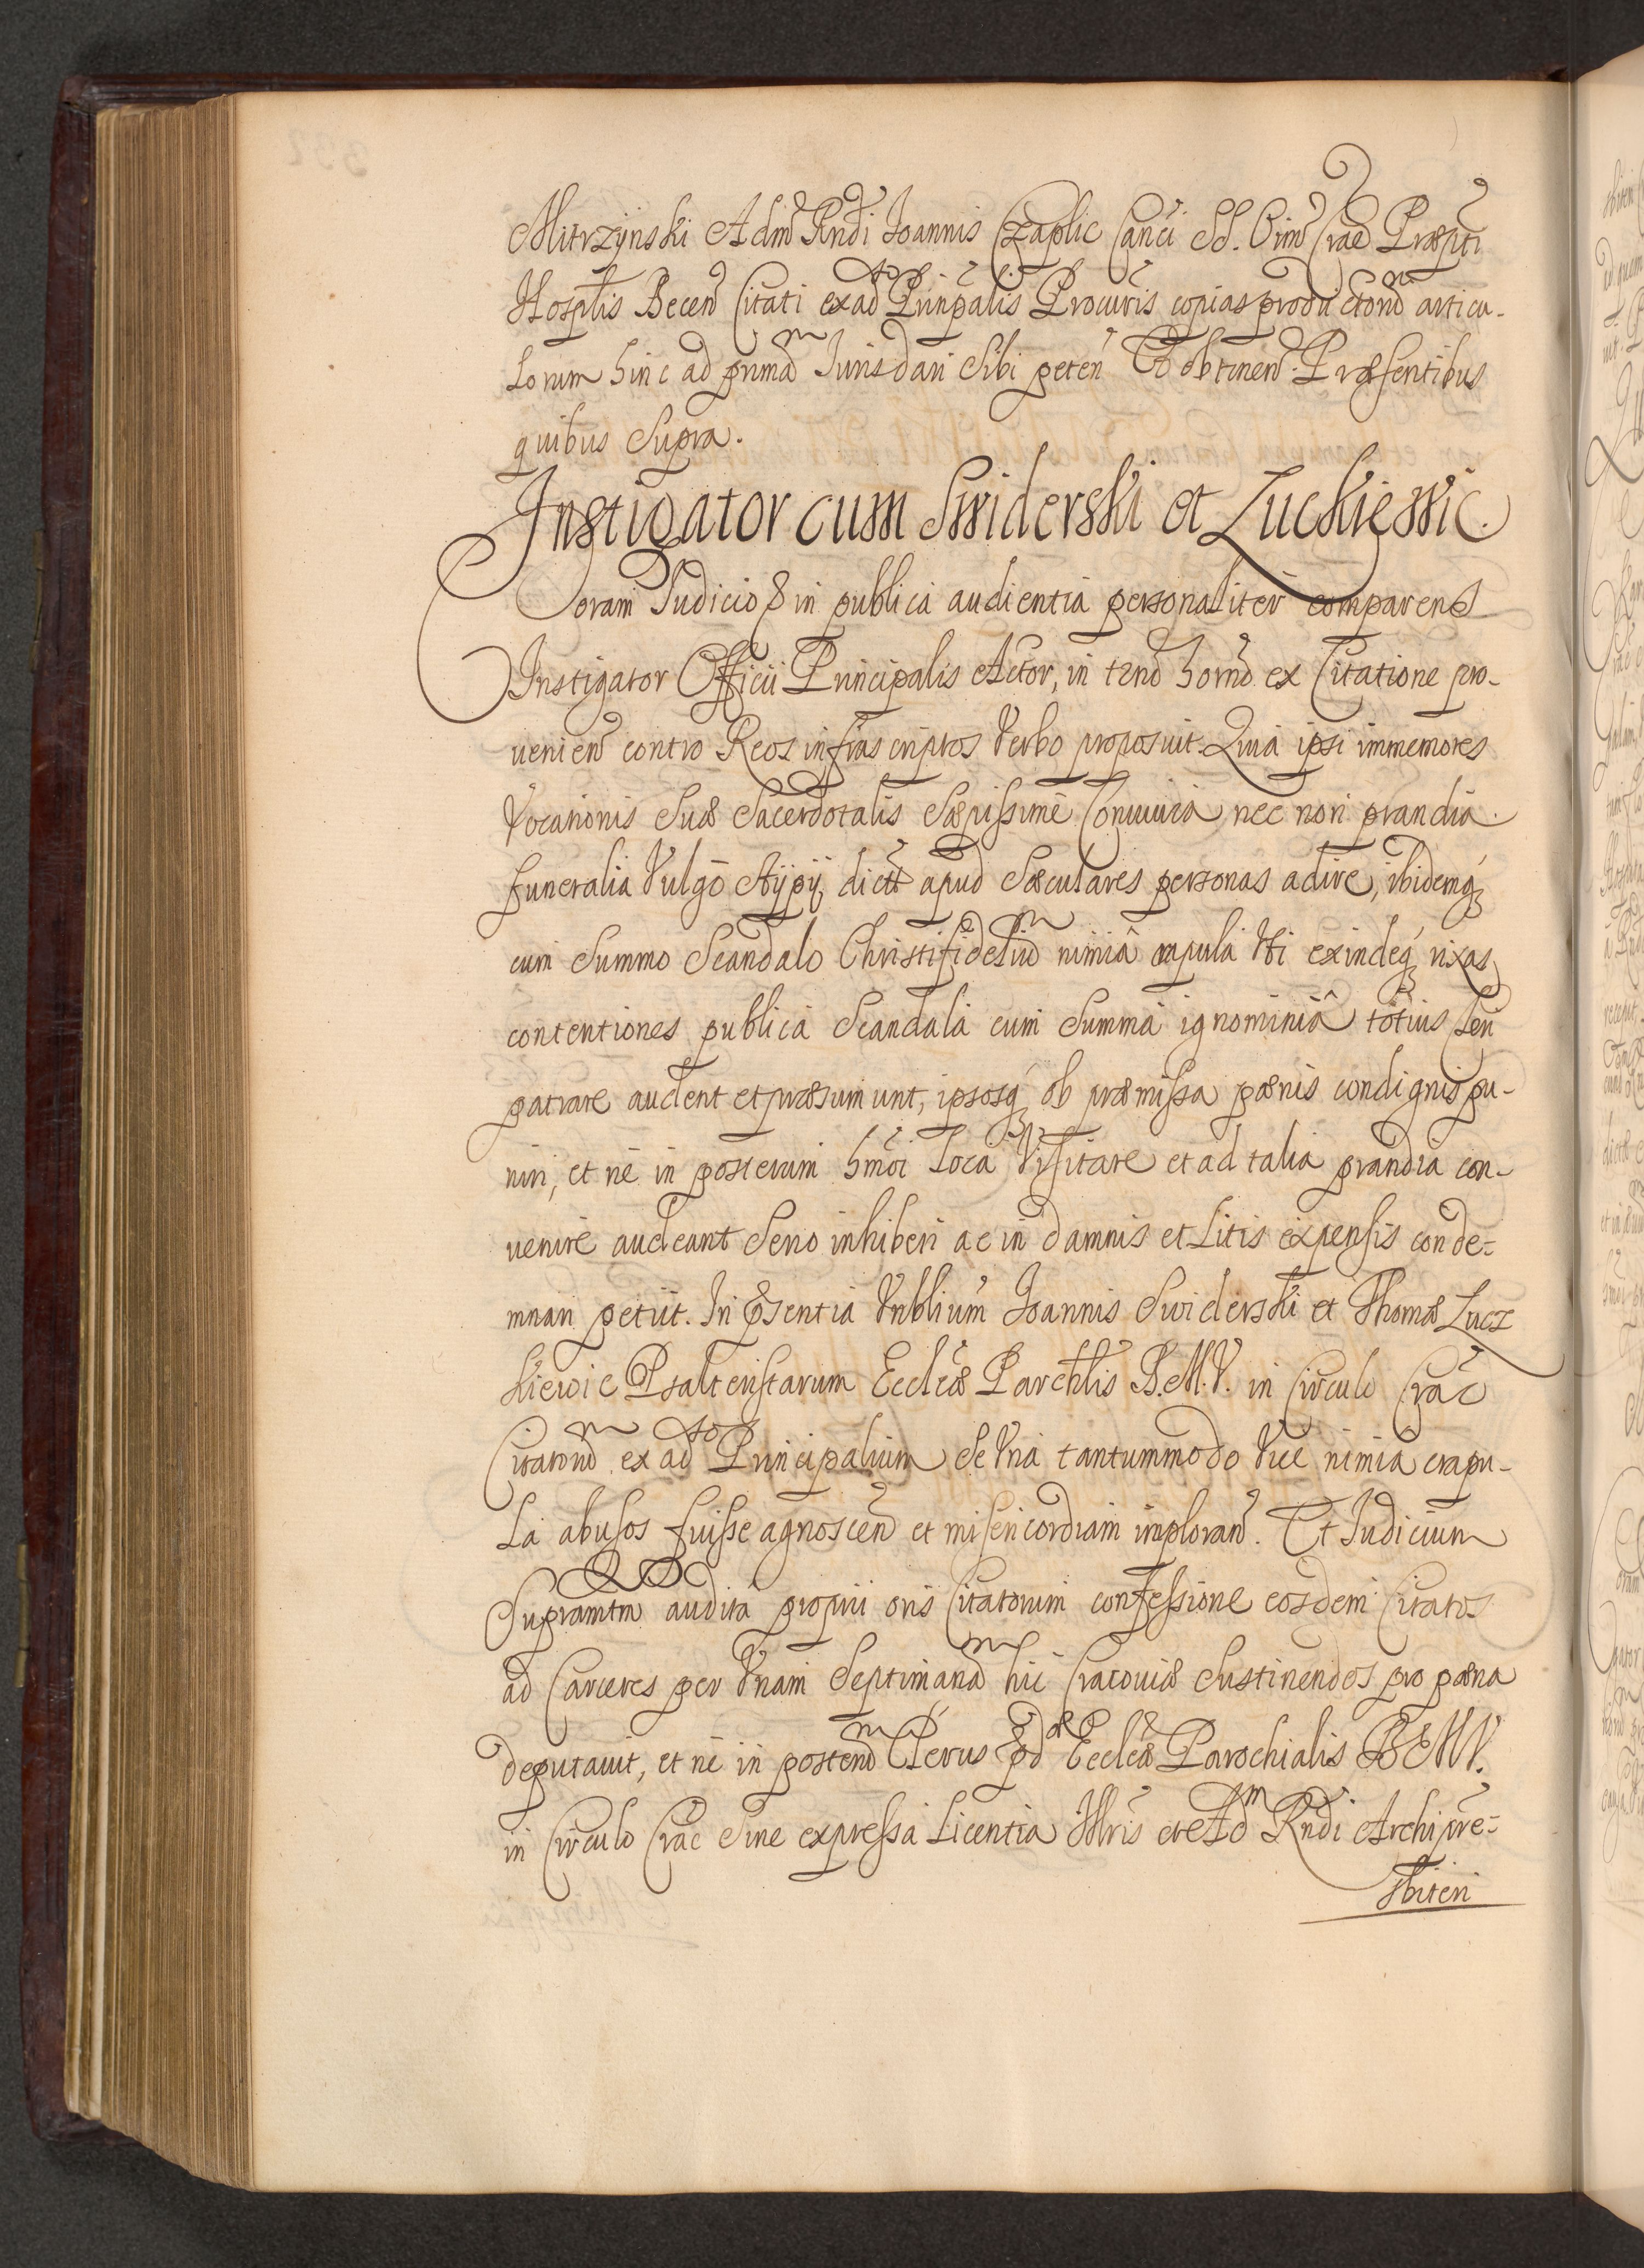 Mitrzÿnski Adm Rndi Ioannis Czaplic Canci SS. Oim Crac Præpti
Hosplis Becen Citati ex ad Prinpalis Procuris copias productorum articu-
lorum hinc ad primam Iuris dari Sibi peten Et obtinen. Præsentibus
quibus Supra.
Instigator cum Swiderski et Łuckiewic.
Coram Iudicio & in publica audientia personaliter comparens
Instigator Officii Principalis Actor, in tno horno ex Citatione pro-
venien contra Reos infrascriptos Verbo proposuit. Quia ipsi immemores
Vocationis Suæ Sacerdotalis Sæpissime Conuiuia nec non prandia
funeralia Vulgo Stÿpÿ dicta apud Sæculares personas adire, ibidemq
cum Summo Scandalo Christifideliũ nimiâ crapula Uti exindeq rixas
contentiones publica Scandala cum Summa ignominiâ totius Cleri
patrare audent et præsumunt, ipsosq ob præmissa pænis condignis pu-
niri, et ne in posterum hmoi Loca Visitare et ad talia prandia con-
uenire audeant Serio inhiberi ac in damnis et Litis expensis conde-
mnari petiit. In Psentia Vnblium Ioannis Swiderski et Thomæ Lucz
kiewic Psalteristarum Eccleæ Parchlis B.M.V. in Circulo Crac
Citatorum ex ad Principalium se Vna tantummodo Vice nimia crapu-
la abusos fuisse agnoscen et misericordiam imploran. Et Iudicium
Supramtm audita proprii oris Citatorum confessione eosdem Citatos
ad Carceres per Vnam Septimanam hic Cracoviæ Sustinendos pro pæna
deputauit, et ne in posterum Clerus pd Eccleæ Parochialis B M V.
in Circulo Crac Sine expressa Licentia Illris et Adm Rndi Archipre-
sbiteri